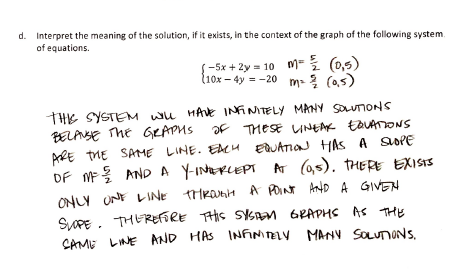 d. Interpret the meaning of the solution, if it exists, in the context of the graph of the following system
of equations.
{-5x + 2y = 10 m= 5/2 (0,5)
{10x - 4y = -20 m= 5/2 (0,5)
THIS SYSTEM WILL HAVE INFINITELY MANY SOLUTIONS
BECAUSE THE GRAPHS OF THESE LINEAR EQUATIONS
ARE THE SAME LINE. EACH EQUATION HAS A SLOPE
OF m= 5/2 AND A Y-INTERCEPT AT (0,5). THERE EXISTS
ONLY ONE LINE THROUGH A POINT AND A GIVEN
SLOPE. THEREFORE THIS SYSTEM GRAPHS AS THE
SAME LINE AND HAS INFINITELY MANY SOLUTIONS.